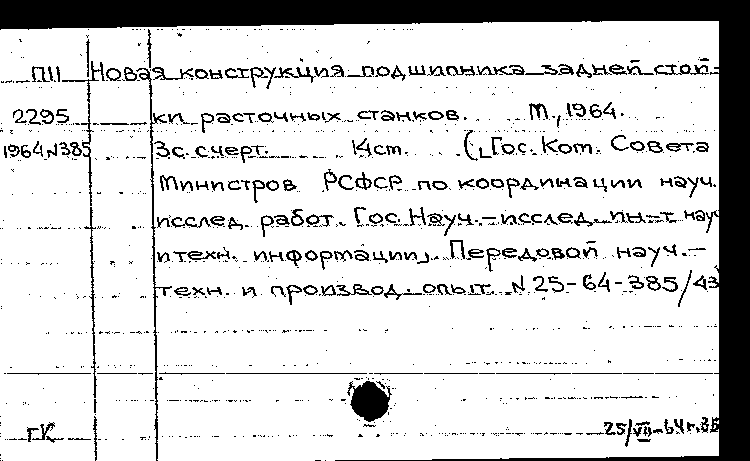 ПII Новая конструкция подшипника задней стой-
2295 ки расточных станков. М., 1964.
1964,N385 3с.счерт. 14см. (Гос. Ком. Совета
Министров РСФСР по координации науч.
исслед. работ. Гос. Науч.-исслед. ин-т науч
и техн. информации). Передовой науч.-
техн. и производ. опыт. N 25-64-385/43
ГК 25/VII-64г.